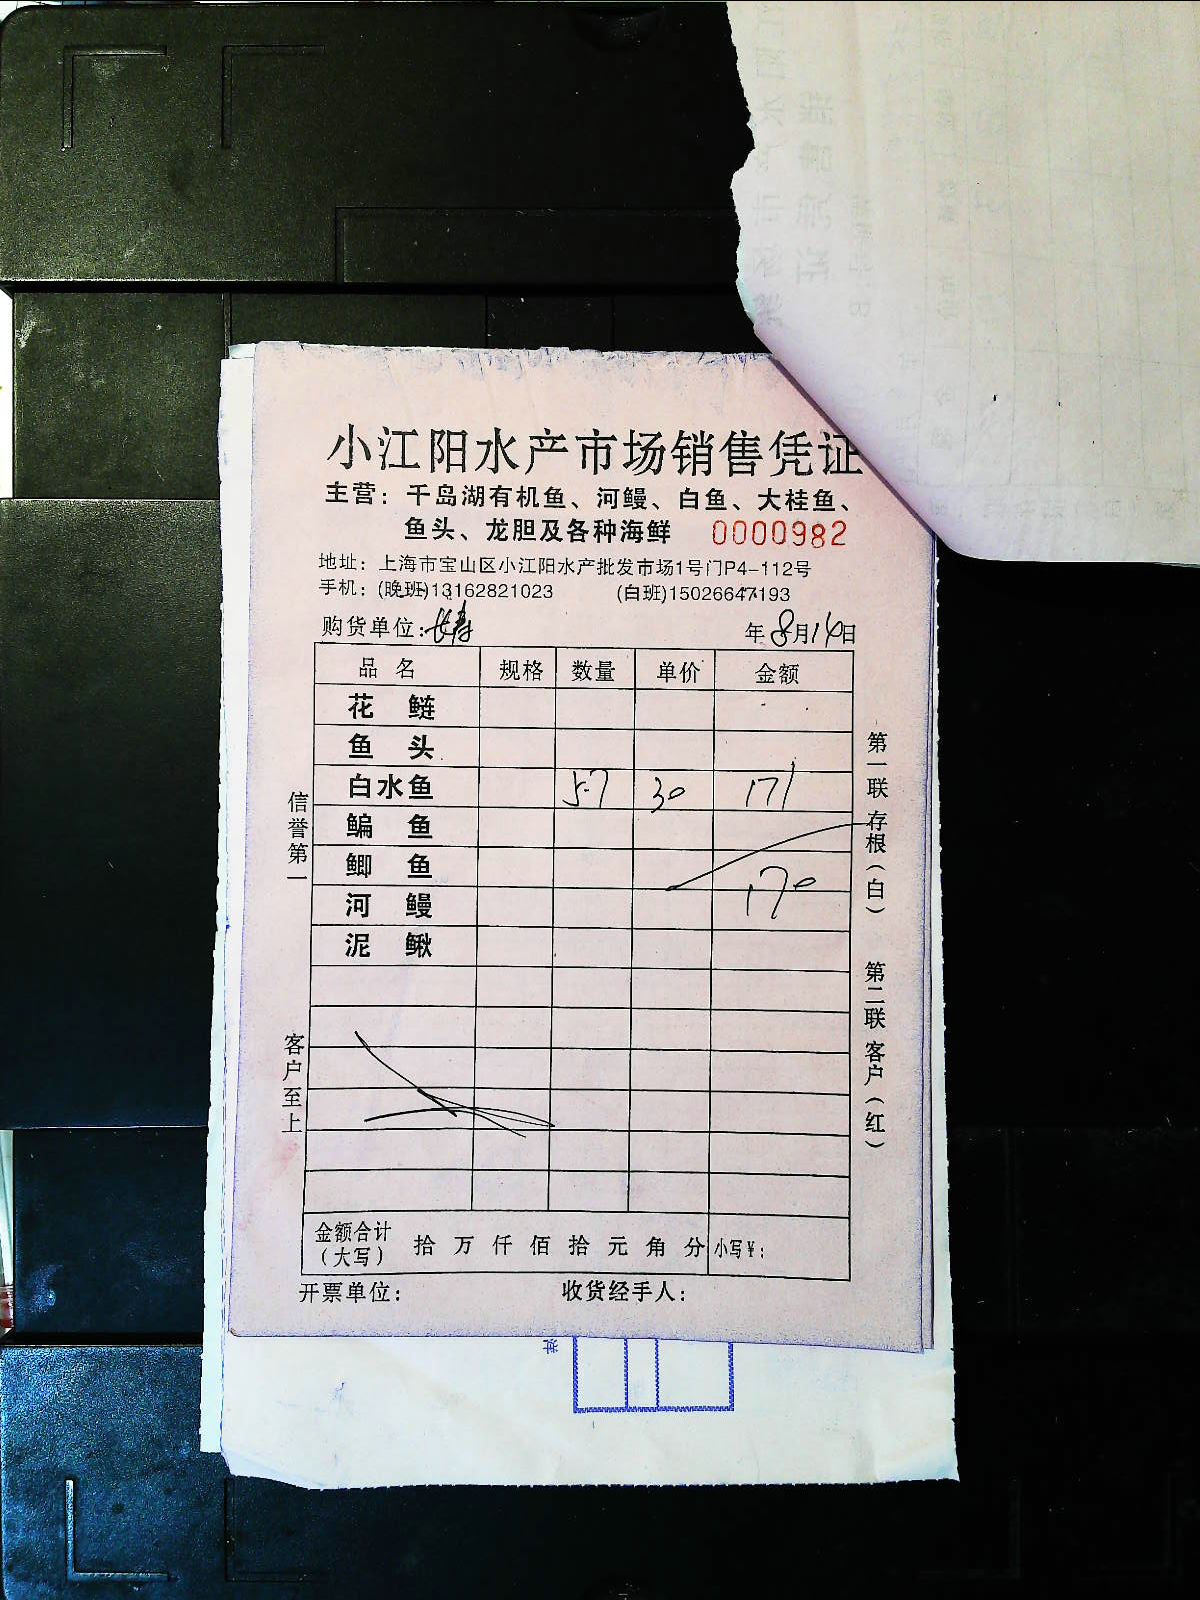 小江阳水产市场销售凭证
主营：千岛湖有机鱼、河鳗、白鱼、大桂鱼、
鱼头、龙胆及各种海鲜 0000982
地址：上海市宝山区小江阳水产批发市场1号门P4-112号
手机：(晚班)13162821023 (白班)15026647193
购货单位：长寿 年8月14日
品名 规格 数量 单价 金额
花鲢
鱼头
白水鱼 5.7 30 171
鳊鱼
鲫鱼 170
河鳗
泥鳅
金额合计（大写） 拾万仟佰拾元角分 小写¥：
开票单位： 收货经手人：
信誉第一
客户至上
第一联 存根（白）
第二联 客户（红）